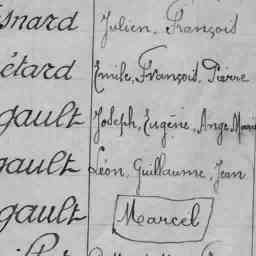 snard Julien, François
étard Emile, François, Pierre
gault Joseph, Eugène, Ange Marie
gault Léon, Guillaume, Jean
gault Marcel